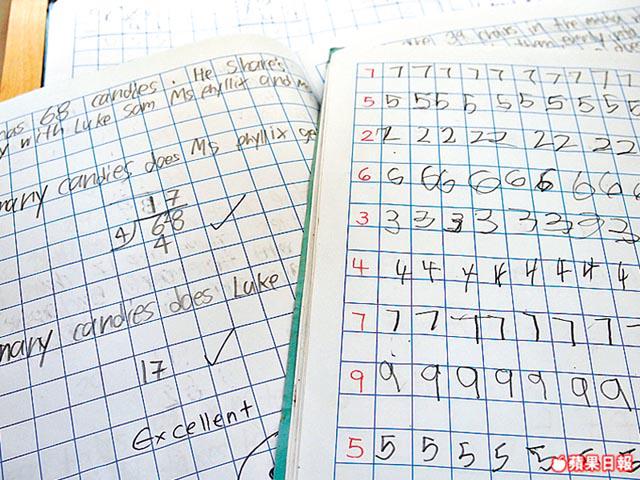 has 68 candies. He shares
with Luke Sam Ms phyllix and
many candies does Ms phyllix
17
4 68
4
many candies does Luke
17
Excellent
chairs in the
evenly
7 7 7 7 7 7 7 7 7
5 5 5 5 5 5 5 5 5
2 2 2 2 2 2 2 2 2
6 6 6 6 6 6 6 6 6 6
3 3 3 3 3 3 3 3 3
4 4 4 4 4 4 4 4
7 7 7 7 7 7 7 7
9 9 9 9 9 9 9 9
5 5 5 5 5 5 5 5
蘋果日報